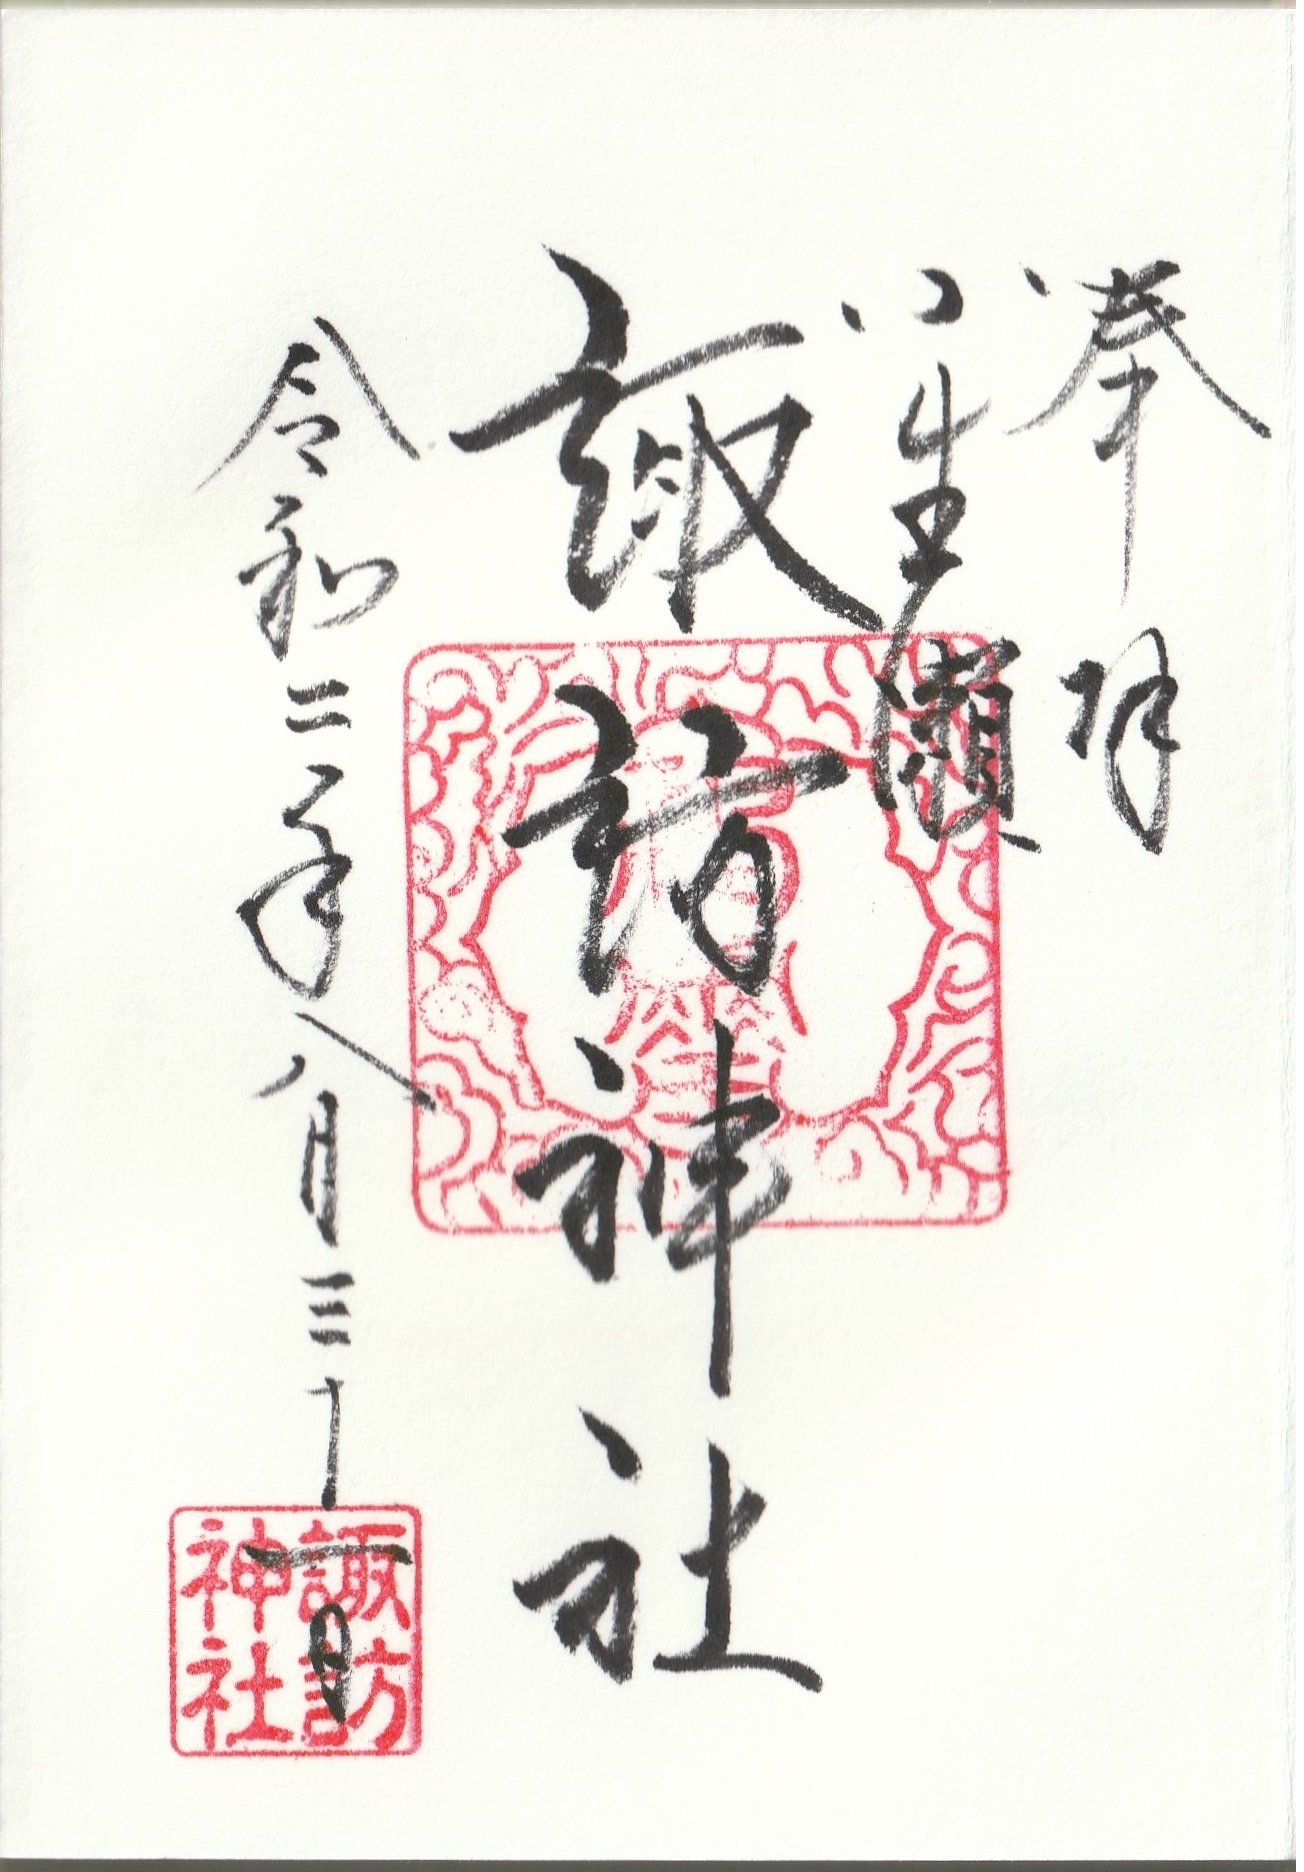 奉拝
小生瀬
諏訪神社
令和二年八月三十一日
諏訪
神社